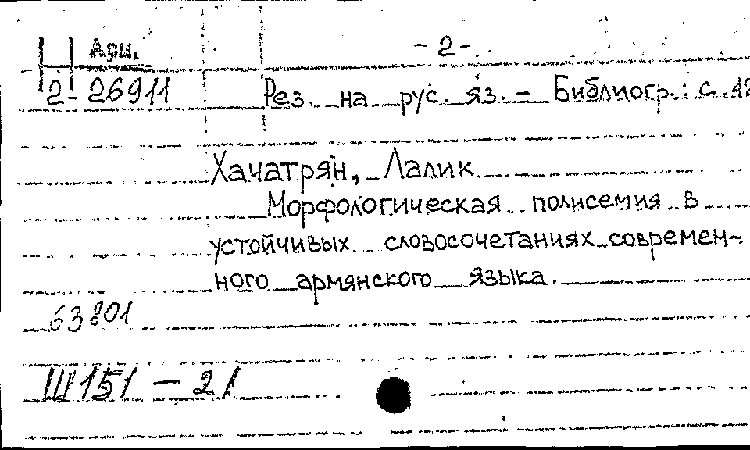 Арм. - 2 -
2-26911 Рез. на рус. яз. - Библиогр.: с. 12
Хачатрян, Лалик
Морфологическая полисемия в
устойчивых словосочетаниях современ-
ного армянского языка.
63801
Ш151-21